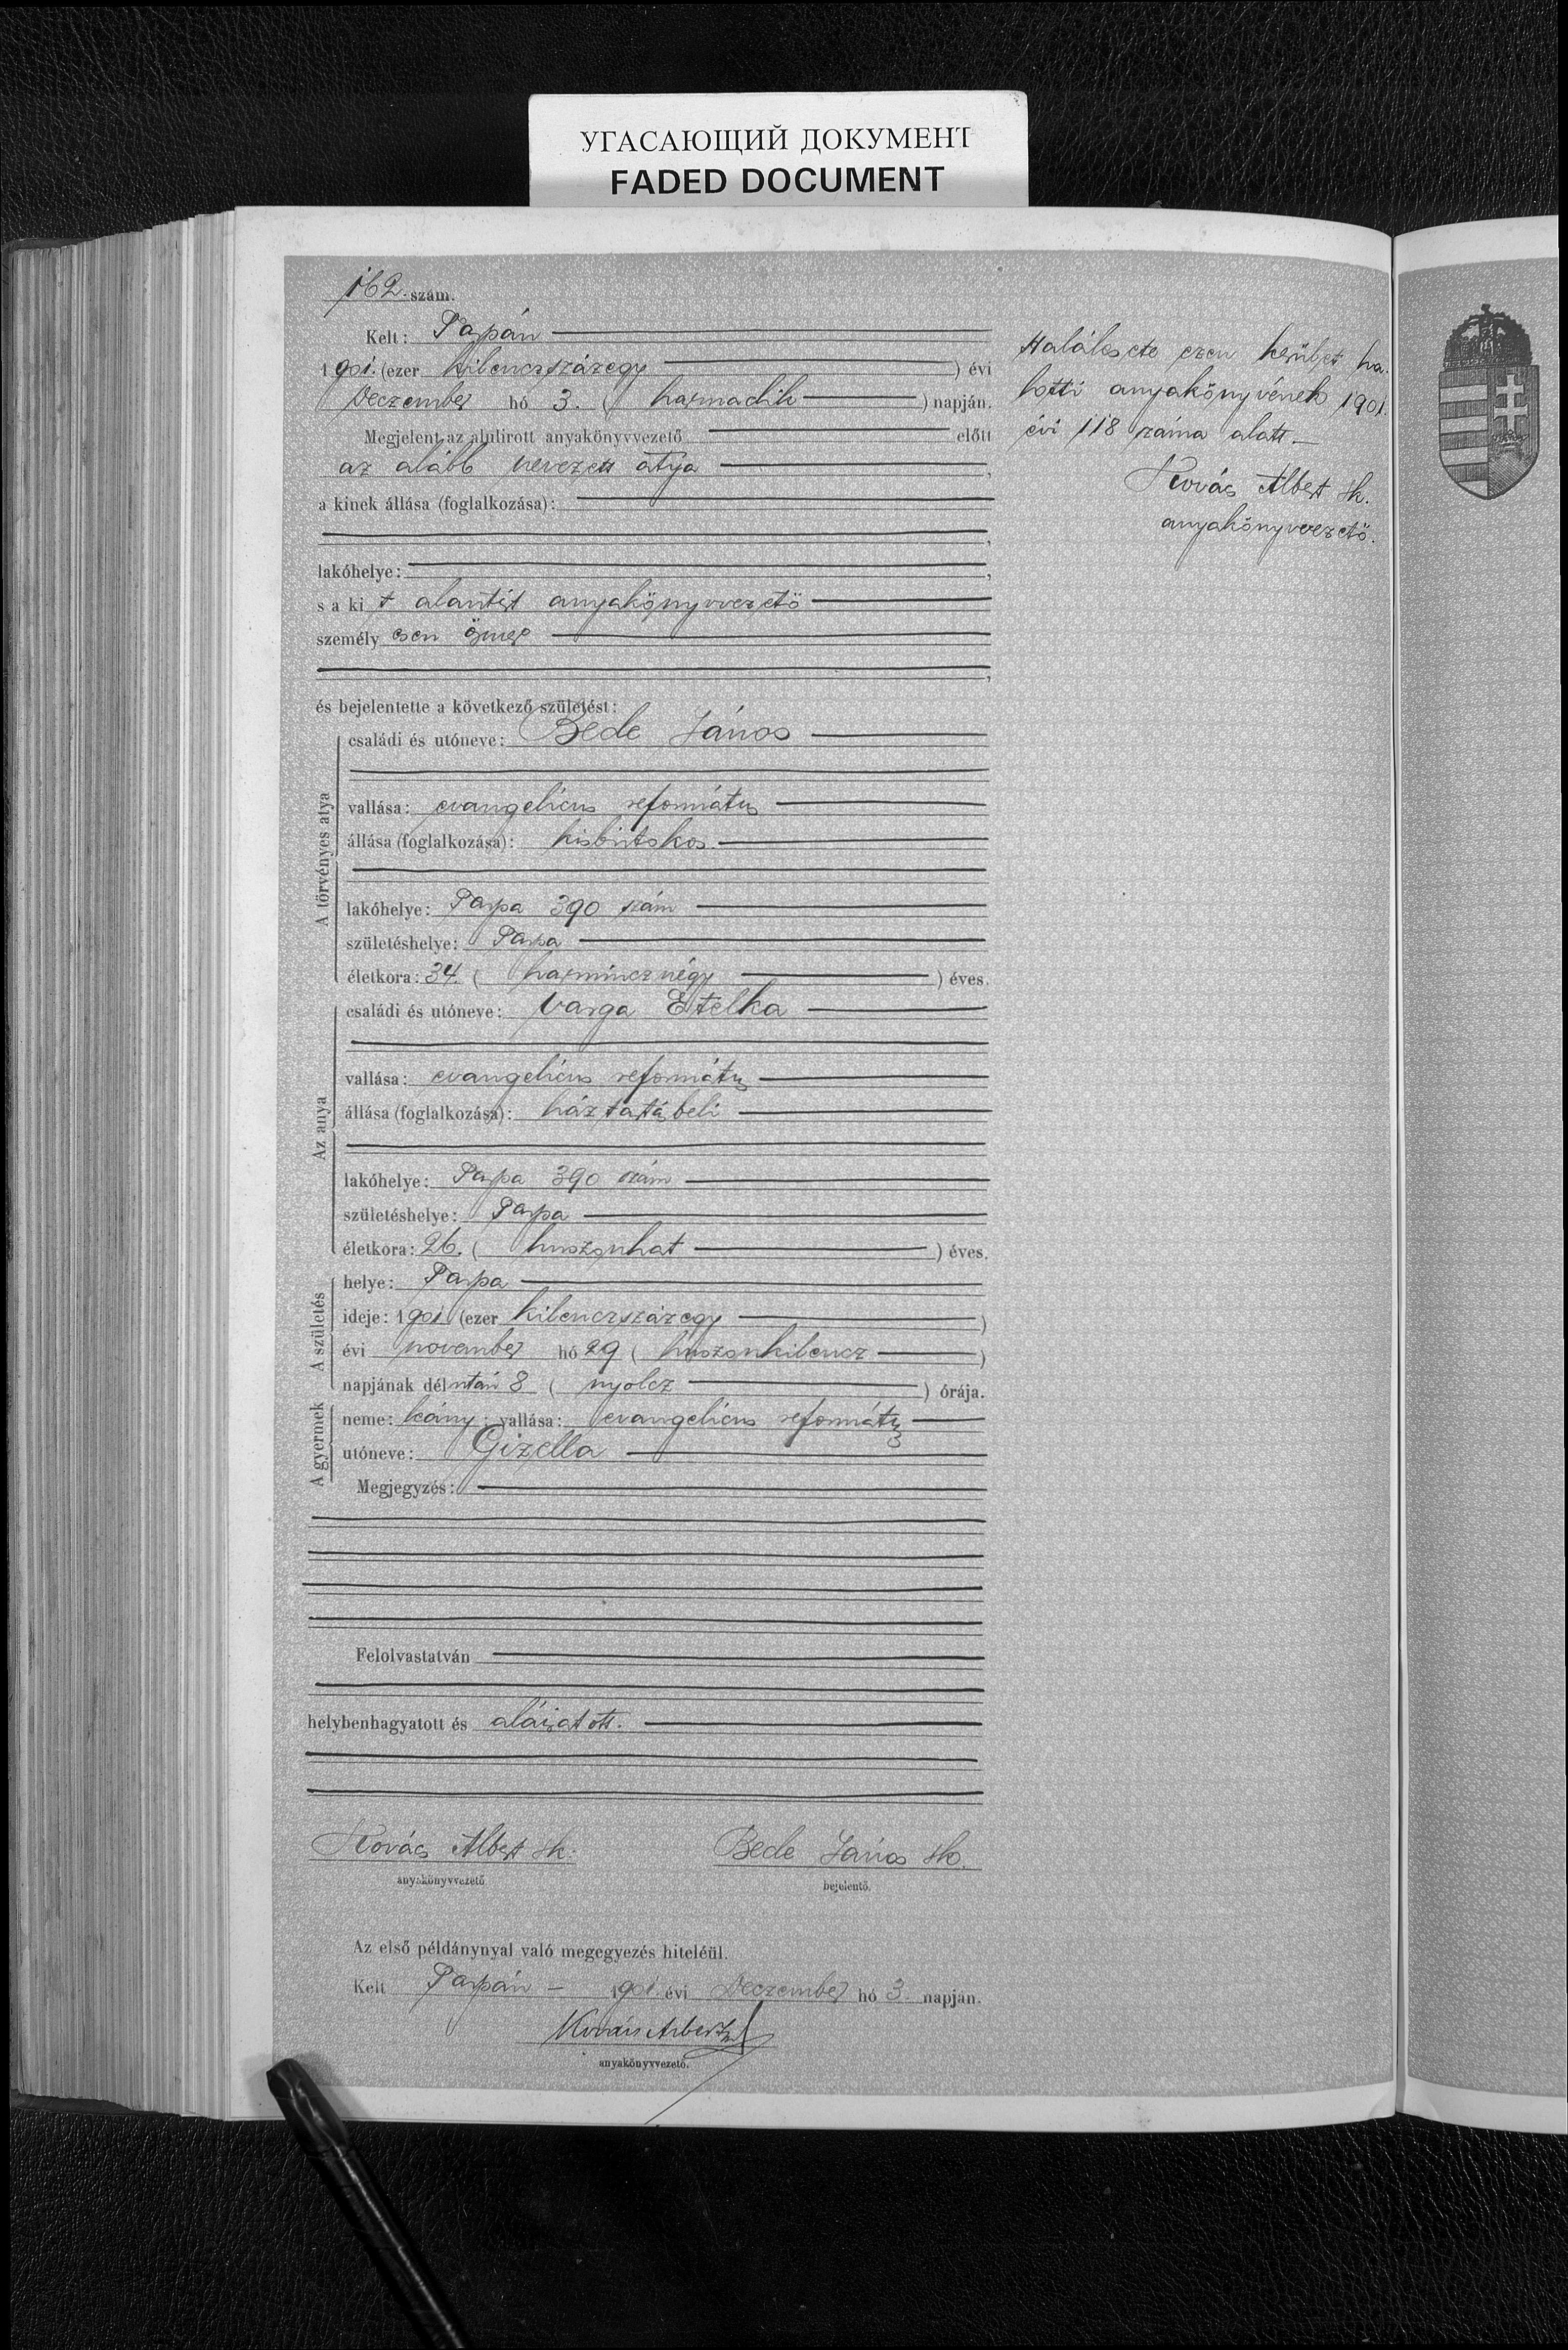 УГАСАЮЩИЙ ДОКУМЕНТ
FADED DOCUMENT
162. szám.
Kelt: Tarpán
1901. (ezer kilenczszázegy ) évi
Deczember hó 3. ( harmadik ) napján.
Megjelent az alulirott anyakönyvvezető előtt
az alább nevezett atya ,
a kinek állása (foglalkozása):
,
lakóhelye: ,
s a ki t alantirt anyakönyvvezető
személyesen ismer
,
és bejelentette a következő születést:
A törvényes atya
családi és utóneve: Bede János
vallása: evangelicus református
állása (foglalkozása): kisbirtokos.
lakóhelye: Tarpa 390 szám
születéshelye: Tarpa
életkora: 34. ( harmincznégy ) éves.
Az anya
családi és utóneve: Varga Etelka
vallása: evangelicus református
állása (foglalkozása): háztartásbeli
lakóhelye: Tarpa 390 szám
születéshelye: Tarpa
életkora: 26. ( huszonhat ) éves.
A születés
helye: Tarpa
ideje: 1901 (ezer kilenczszázegy )
évi november hó 29 ( huszonkilencz )
napjának délután 8 ( nyolcz ) órája.
A gyermek
neme: leány; vallása: evangelicus református
utóneve: Gizella
Megjegyzés:
Felolvastatván
helybenhagyatott és aláiratott.
Kovács Albert sk. Bede János sk.
anyakönyvvezető bejelentő.
Az első példánynyal való megegyezés hiteléül.
Kelt Tarpán – 1901 évi Deczember hó 3. napján.
Kovács Albert
anyakönyvvezető.
Halálesete ezen kerület ha-
lotti anyakönyvének 1901.
évi 118 száma alatt –
Kovács Albert sk.
anyakönyvvezető.